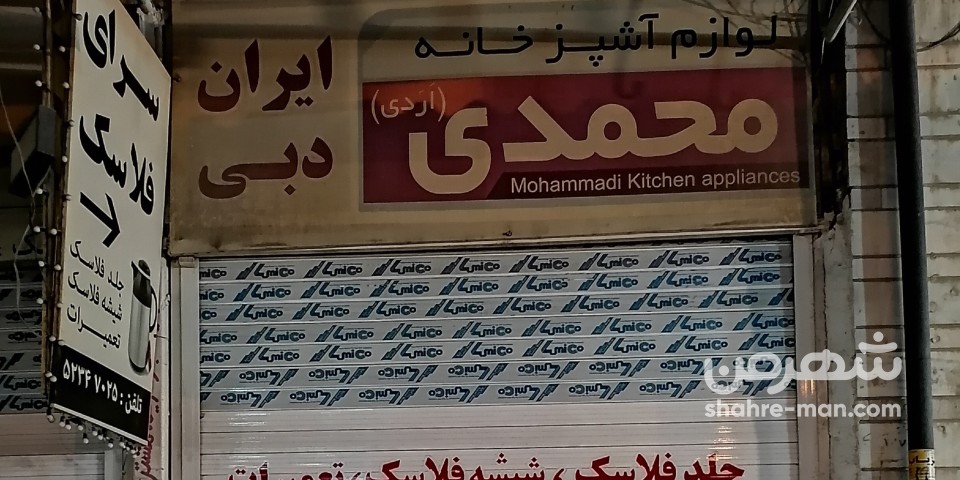 لوازم آشپزخانه
ایران
دبی
محمدی (آردی)
Mohammadi Kitchen appliances
سرای
فلاسک
جلد فلاسک
شیشه فلاسک
تعمیرات
تلفن : ۵۲۳۴۷۰۲۵
جلد فلاسک ، شیشه فلاسک ، تعمیرات
شهرمن
shahre-man.com